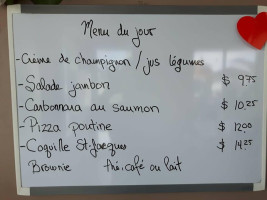 Menu du jour
- Crème de champignon / jus légumes
- Salade jambon $ 9.75
- Carbonara au saumon $ 10.25
- Pizza poutine $ 12.00
- Coquille St-Jacques $ 14.25
Brownie thé, café ou lait